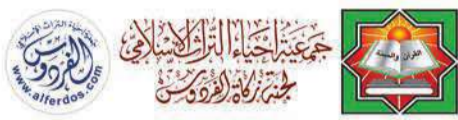 القرآن والسنة
جمعية إحياء التراث الإسلامي
لجنة زكاة الفردوس
جمعية إحياء التراث الإسلامي
الفردوس
www.alferdos.com